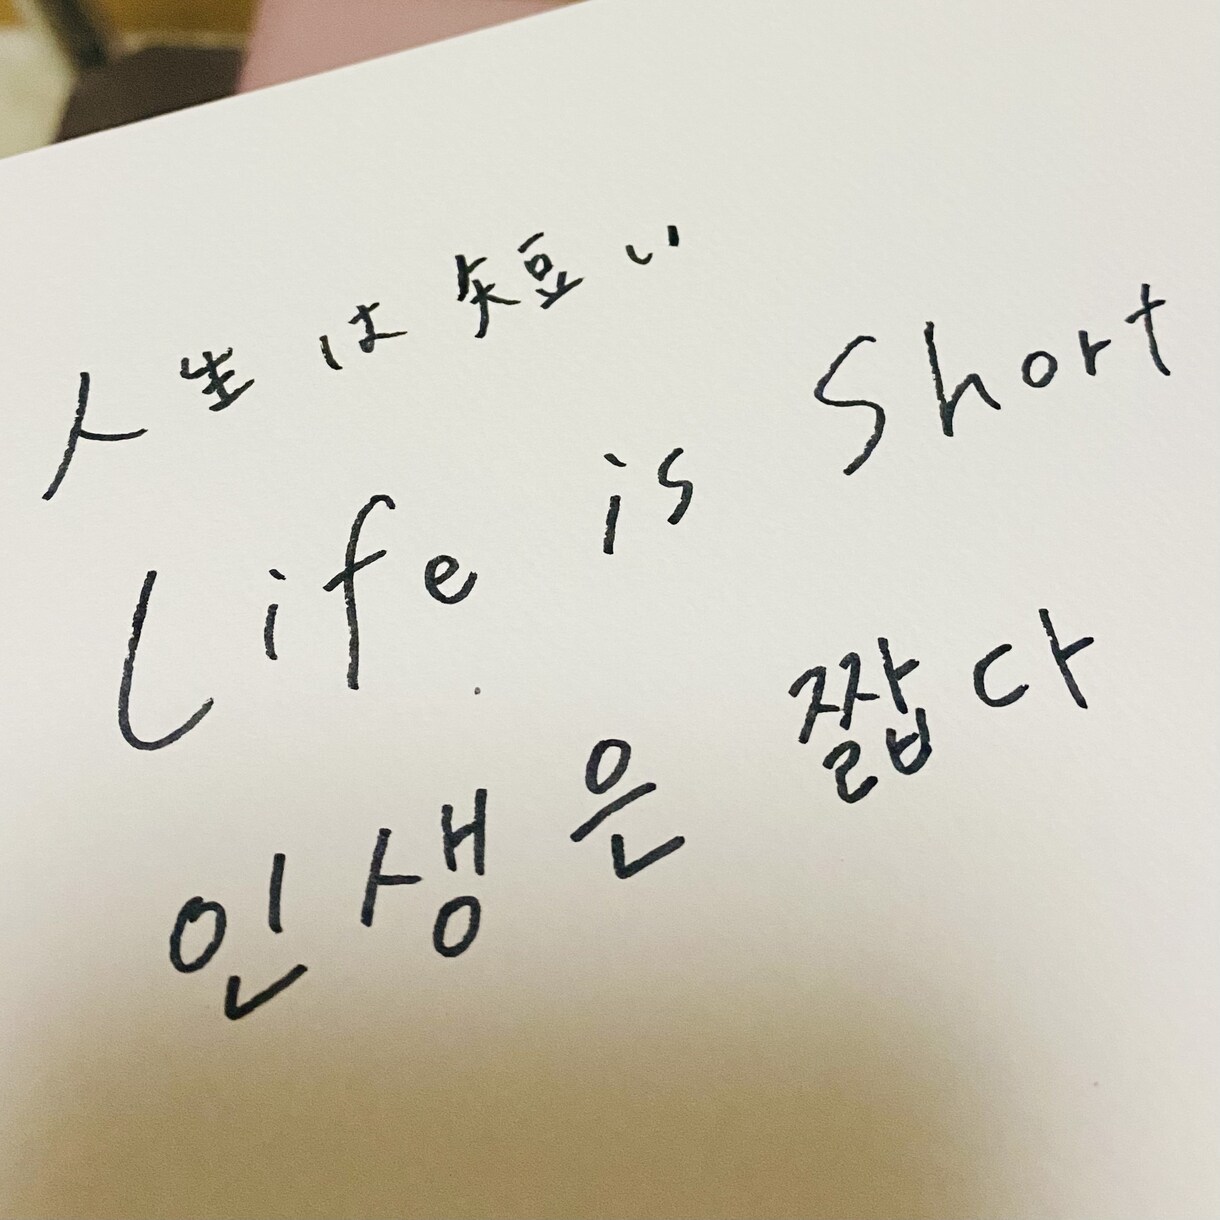 人生は短い
Life is Short
인생은 짧다